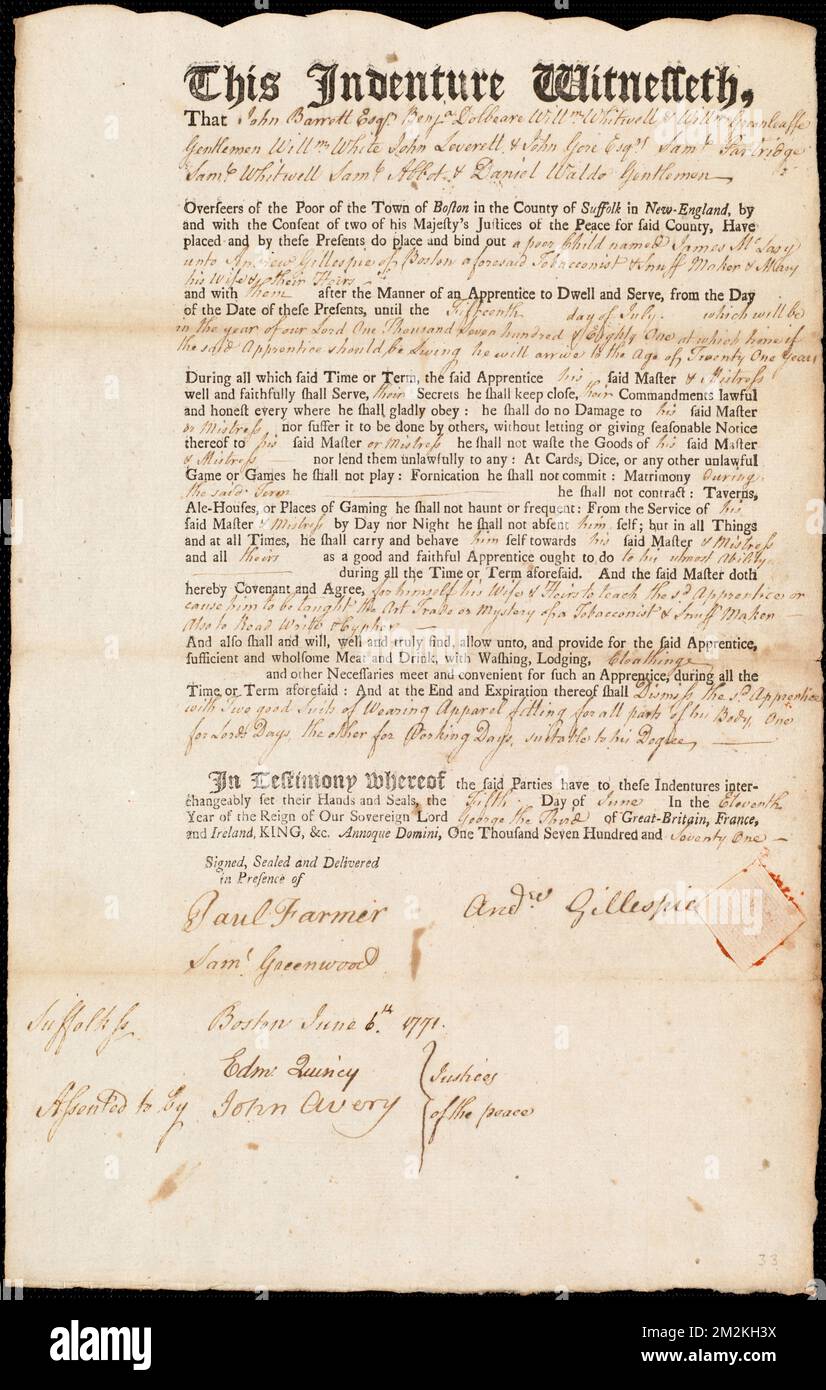 This Indenture Witnesseth,
That John Barrett Esqr. Benja. Dolbeare Willm. Whitwell & Willm. Greenleaffe
Gentlemen Willm. White John Leverett & John Gore Esqrs. Saml. Partridge
Saml. Whitwell Saml. Abbot & Daniel Waldo Gentlemen
Overseers of the Poor of the Town of Boston in the County of Suffolk in New-England, by
and with the Consent of two of his Majesty's Justices of the Peace for said County, Have
placed and by these Presents do place and bind out a poor Child named James Mc
unto Andrew Gillespie of Boston aforesaid Tobacconist & Snuff Maker & Mary
his Wife & their Heirs
and with them after the Manner of an Apprentice to Dwell and Serve, from the Day
of the Date of these Presents, until the Fifteenth day of July. which will be
in the year of our Lord One Thousand Seven hundred & Eighty One at which time if
the said Apprentice should be living he will arrive to the Age of Twenty One Years
During all which said Time or Term, the said Apprentice his said Master & Mistress
well and faithfully shall Serve, their Secrets he shall keep close, their Commandments lawful
and honest every where he shall gladly obey: he shall do no Damage to his said Master
or Mistress nor suffer it to be done by others, without letting or giving seasonable Notice
thereof to his said Master or Mistress he shall not waste the Goods of his said Master
& Mistress nor lend them unlawfully to any: At Cards, Dice, or any other unlawful
Game or Games he shall not play: Fornication he shall not commit: Matrimony during
the said Term he shall not contract: Taverns,
Ale-Houses, or Places of Gaming he shall not haunt or frequent: From the Service of his
said Master & Mistress by Day nor Night he shall not absent him self; but in all Things
and at all Times, he shall carry and behave him self towards his said Master & Mistress
and all theirs as a good and faithful Apprentice ought to do to his utmost Ability
during all the Time or Term aforesaid. And the said Master doth
hereby Covenant and Agree, for himself his Wife & Heirs to teach the sd. Apprentice or
cause him to be taught the Art Trade or Mystery of a Tobacconist & Snuff Maker
Also to Read Write & Cypher
And also shall and will, well and truly find, allow unto, and provide for the said Apprentice,
sufficient and wholsome Meat and Drink, with Washing, Lodging, Cloathing
and other Necessaries meet and convenient for such an Apprentice, during all the
Time or Term aforesaid: And at the End and Expiration thereof shall Dismiss the sd. Apprentice
with Two good Suits of Wearing Apparel fitting for all parts of his Body, One
for Lords Days, the other for Working Days, suitable to his Degree
In Testimony whereof the said Parties have to these Indentures inter-
changeably set their Hands and Seals, the Fifth Day of June In the Eleventh
Year of the Reign of Our Sovereign Lord George the Third of Great-Britain, France,
and Ireland, KING, &c. Annoque Domini, One Thousand Seven Hundred and Seventy One
Signed, Sealed and Delivered
in Presence of
Paul Farmer Andw Gillespie
Saml. Greenwood
Suffolk ss Boston June 6th. 1771.
Edm. Quincy Justices
Assented to by John Avery of the peace
33
alamy
Image ID: 2M2KH3X
www.alamy.com